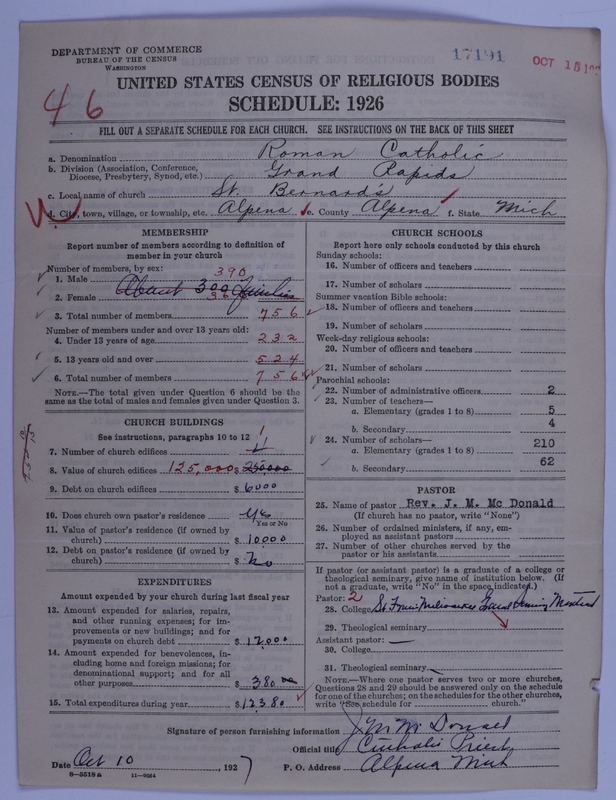 DEPARTMENT OF COMMERCE
BUREAU OF THE CENSUS
WASHINGTON
17191
OCT 15
46
UNITED STATES CENSUS OF RELIGIOUS BODIES
SCHEDULE: 1926
FILL OUT A SEPARATE SCHEDULE FOR EACH CHURCH. SEE INSTRUCTIONS ON THE BACK OF THIS SHEET
a. Denomination Roman Catholic
b. Division (Association, Conference, Diocese, Presbytery, Synod, etc.) Grand Rapids
c. Local name of church St. Bernard's
d. City, town, village, or township, etc. Alpena e. County Alpena f. State Mich
MEMBERSHIP
Report number of members according to definition of
member in your church
Number of members, by sex:
1. Male 390
About 300 families
2. Female
3. Total number of members 756
Number of members under and over 13 years old:
4. Under 13 years of age 232
5. 13 years old and over 524
6. Total number of members 756
NOTE.—The total given under Question 6 should be
same as the total of males and females given under Question 3.
CHURCH BUILDINGS
See instructions, paragraphs 10 to 12
7. Number of church edifices 1
8. Value of church edifices 125,000 $ 250,000
9. Debt on church edifices $ 6000
10. Does church own pastor's residence Yes
Yes or No
11. Value of pastor's residence (if owned by
church) $ 10000
12. Debt on pastor's residence (if owned by
church) $ No
EXPENDITURES
Amount expended by your church during last fiscal year
13. Amount expended for salaries, repairs,
and other running expenses; for im-
provements or new buildings; and for
payments on church debt $ 12,000
14. Amount expended for benevolences, in-
cluding home and foreign missions; for
denominational support; and for all
other purposes $ 380 00
15. Total expenditures during year $ 12380
CHURCH SCHOOLS
Report here only schools conducted by this church
Sunday schools:
16. Number of officers and teachers
17. Number of scholars
Summer vacation Bible schools:
18. Number of officers and teachers
19. Number of scholars
Week-day religious schools:
20. Number of officers and teachers
21. Number of scholars
Parochial schools:
22. Number of administrative officers 2
23. Number of teachers—
a. Elementary (grades 1 to 8) 5
b. Secondary 4
24. Number of scholars—
a. Elementary (grades 1 to 8) 210
b. Secondary 62
PASTOR
25. Name of pastor Rev. J. M. Mc Donald
(If church has no pastor, write "None")
26. Number of ordained ministers, if any, em-
ployed as assistant pastors
27. Number of other churches served by the
pastor or his assistants
If pastor (or assistant pastor) is a graduate of a college or
theological seminary, give name of institution below. (If
not a graduate, write "No" in the space indicated.)
Pastor: 2
28. College St Francis Milwaukee Grand Seminary Montreal
29. Theological seminary
Assistant pastor: —
30. College
31. Theological seminary
NOTE.—Where one pastor serves two or more churches,
Questions 28 and 29 should be answered only on the schedule
for one of the churches; on the schedules for the other churches,
write "See schedule for church."
Signature of person furnishing information J M McDonald
Official title Catholic Priest
Date Oct 10, 1927 P. O. Address Alpena Mich
8—5518 a 11—9264